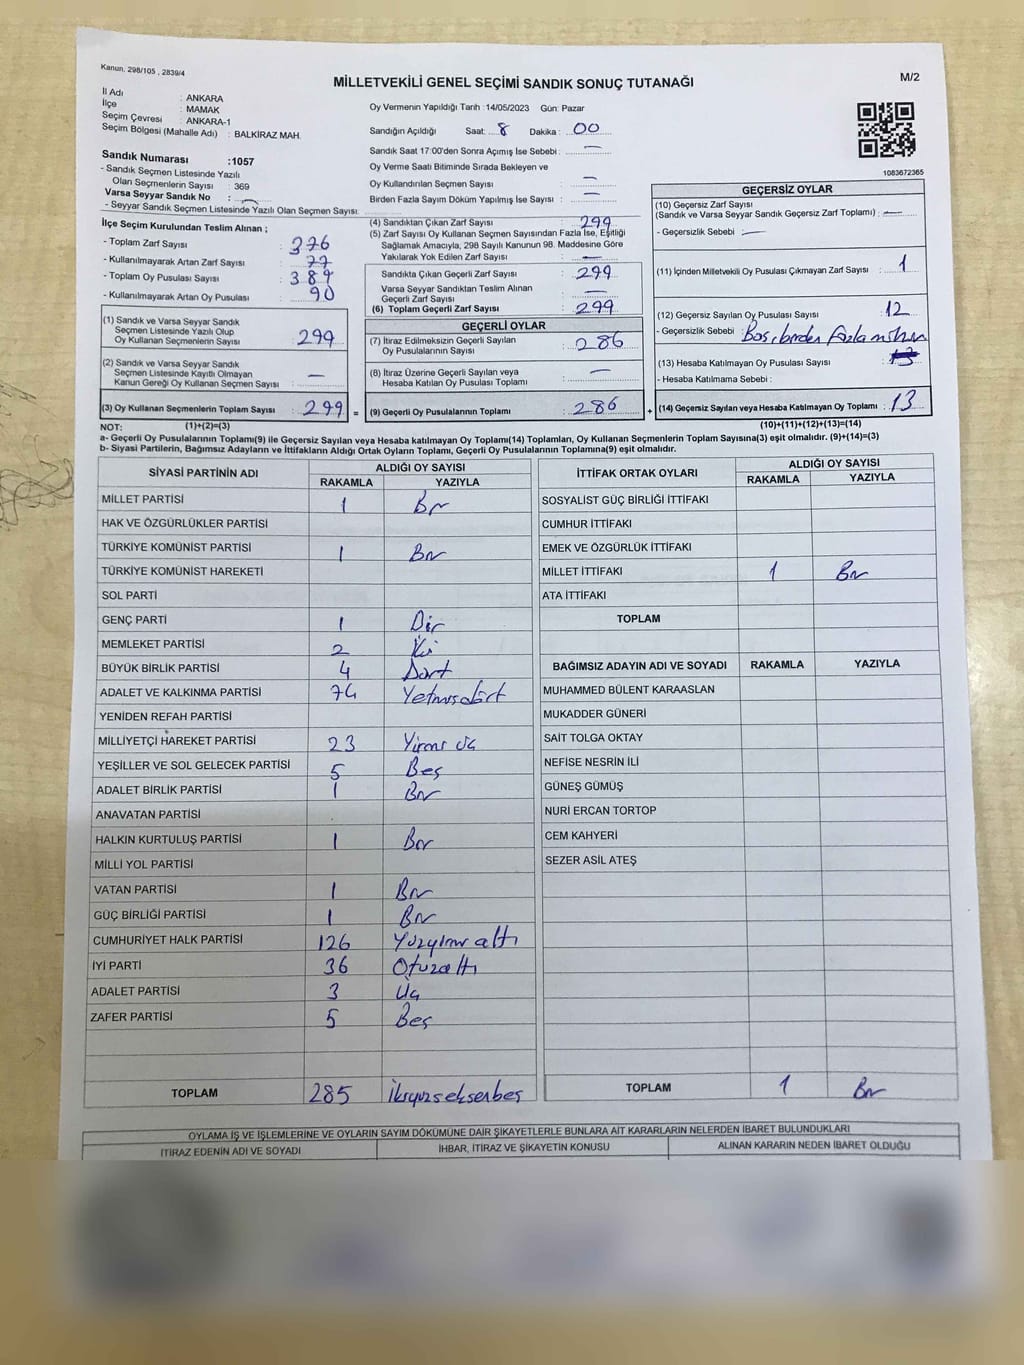 Kanun, 298/105 , 2839/4
MİLLETVEKİLİ GENEL SEÇİMİ SANDIK SONUÇ TUTANAĞI
M/2
İl Adı : ANKARA
İlçe : MAMAK
Seçim Çevresi : ANKARA-1
Seçim Bölgesi (Mahalle Adı) : BALKİRAZ MAH.
Sandık Numarası :1057
- Sandık Seçmen Listesinde Yazılı
Olan Seçmenlerin Sayısı : 369
Varsa Seyyar Sandık No : —
- Seyyar Sandık Seçmen Listesinde Yazılı Olan Seçmen Sayısı:
İlçe Seçim Kurulundan Teslim Alınan ;
- Toplam Zarf Sayısı : 376
- Kullanılmayarak Artan Zarf Sayısı : 77
- Toplam Oy Pusulası Sayısı : 389
- Kullanılmayarak Artan Oy Pusulası : 90
(1) Sandık ve Varsa Seyyar Sandık
Seçmen Listesinde Yazılı Olup
Oy Kullanan Seçmenlerin Sayısı : 299
(2) Sandık ve Varsa Seyyar Sandık
Seçmen Listesinde Kayıtlı Olmayan
Kanun Gereği Oy Kullanan Seçmen Sayısı : —
(3) Oy Kullanan Seçmenlerin Toplam Sayısı : 299 =
Oy Vermenin Yapıldığı Tarih :14/05/2023 Gün: Pazar
Sandığın Açıldığı Saat: 8 Dakika : 00
Sandık Saat 17:00'den Sonra Açımış İse Sebebi : —
Oy Verme Saati Bitiminde Sırada Bekleyen ve
Oy Kullandırılan Seçmen Sayısı : —
Birden Fazla Sayım Döküm Yapılmış İse Sayısı : —
(4) Sandıktan Çıkan Zarf Sayısı : 299
(5) Zarf Sayısı Oy Kullanan Seçmen Sayısından Fazla İse, Eşitliği
Sağlamak Amacıyla, 298 Sayılı Kanunun 98. Maddesine Göre
Yakılarak Yok Edilen Zarf Sayısı : —
Sandıkta Çıkan Geçerli Zarf Sayısı : 299
Varsa Seyyar Sandıktan Teslim Alınan
Geçerli Zarf Sayısı : —
(6) Toplam Geçerli Zarf Sayısı : 299
GEÇERLİ OYLAR
(7) İtiraz Edilmeksizin Geçerli Sayılan
Oy Pusulalarının Sayısı : 286
(8) İtiraz Üzerine Geçerli Sayılan veya
Hesaba Katılan Oy Pusulası Toplamı : —
(9) Geçerli Oy Pusulalarının Toplamı : 286 +
1083672365
GEÇERSİZ OYLAR
(10) Geçersiz Zarf Sayısı
(Sandık ve Varsa Seyyar Sandık Geçersiz Zarf Toplamı) : —
- Geçersizlik Sebebi : —
(11) İçinden Milletvekili Oy Pusulası Çıkmayan Zarf Sayısı : 1
(12) Geçersiz Sayılan Oy Pusulası Sayısı : 12
- Geçersizlik Sebebi :
(13) Hesaba Katılmayan Oy Pusulası Sayısı :
- Hesaba Katılmama Sebebi :
(14) Geçersiz Sayılan veya Hesaba Katılmayan Oy Toplamı : 13
NOT: (1)+(2)=(3) (10)+(11)+(12)+(13)=(14)
a- Geçerli Oy Pusulalarının Toplamı(9) ile Geçersiz Sayılan veya Hesaba katılmayan Oy Toplamı(14) Toplamları, Oy Kullanan Seçmenlerin Toplam Sayısına(3) eşit olmalıdır. (9)+(14)=(3)
b- Siyasi Partilerin, Bağımsız Adayların ve İttifakların Aldığı Ortak Oyların Toplamı, Geçerli Oy Pusulalarının Toplamına(9) eşit olmalıdır.
SİYASİ PARTİNİN ADI ALDIĞI OY SAYISI
RAKAMLA YAZIYLA
MİLLET PARTİSİ 1 Bir
HAK VE ÖZGÜRLÜKLER PARTİSİ
TÜRKİYE KOMÜNİST PARTİSİ 1 Bir
TÜRKİYE KOMÜNİST HAREKETİ
SOL PARTİ
GENÇ PARTİ 1 Bir
MEMLEKET PARTİSİ 2 İki
BÜYÜK BİRLİK PARTİSİ 4 Dört
ADALET VE KALKINMA PARTİSİ 74 Yetmişdört
YENİDEN REFAH PARTİSİ
MİLLİYETÇİ HAREKET PARTİSİ 23 Yirmi üç
YEŞİLLER VE SOL GELECEK PARTİSİ 5 Beş
ADALET BİRLİK PARTİSİ 1 Bir
ANAVATAN PARTİSİ
HALKIN KURTULUŞ PARTİSİ 1 Bir
MİLLİ YOL PARTİSİ
VATAN PARTİSİ 1 Bir
GÜÇ BİRLİĞİ PARTİSİ 1 Bir
CUMHURİYET HALK PARTİSİ 126 Yüzyirmi altı
İYİ PARTİ 36 Otuzaltı
ADALET PARTİSİ 3 Üç
ZAFER PARTİSİ 5 Beş
TOPLAM 285 İkiyüzseksenbeş
İTTİFAK ORTAK OYLARI ALDIĞI OY SAYISI
RAKAMLA YAZIYLA
SOSYALİST GÜÇ BİRLİĞİ İTTİFAKI
CUMHUR İTTİFAKI
EMEK VE ÖZGÜRLÜK İTTİFAKI
MİLLET İTTİFAKI 1 Bir
ATA İTTİFAKI
TOPLAM
BAĞIMSIZ ADAYIN ADI VE SOYADI RAKAMLA YAZIYLA
MUHAMMED BÜLENT KARAASLAN
MUKADDER GÜNERİ
SAİT TOLGA OKTAY
NEFİSE NESRİN İLİ
GÜNEŞ GÜMÜŞ
NURİ ERCAN TORTOP
CEM KAHYERİ
SEZER ASİL ATEŞ
TOPLAM 1 Bir
OYLAMA İŞ VE İŞLEMLERİNE VE OYLARIN SAYIM DÖKÜMÜNE DAİR ŞİKAYETLERLE BUNLARA AİT KARARLARIN NELERDEN İBARET BULUNDUKLARI
İTİRAZ EDENİN ADI VE SOYADI İHBAR, İTİRAZ VE ŞİKAYETİN KONUSU ALINAN KARARIN NEDEN İBARET OLDUĞU